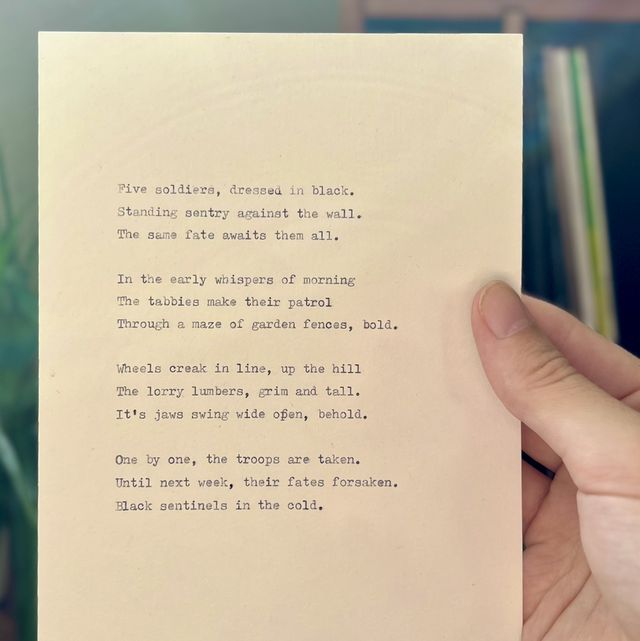 Five soldiers, dressed in black.
Standing sentry against the wall.
The same fate awaits them all.
In the early whispers of morning
The tabbies make their patrol
Through a maze of garden fences, bold.
Wheels creak in line, up the hill
The lorry lumbers, grim and tall.
It's jaws swing wide open, behold.
One by one, the troops are taken.
Until next week, their fates forsaken.
Black sentinels in the cold.